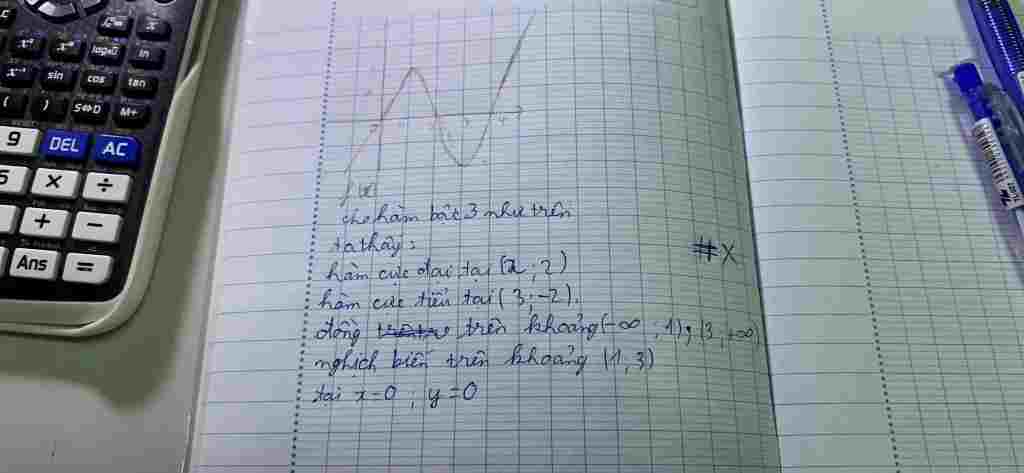 x² x■ log■□ ln
x⁻¹ sin cos tan
( ) S⇔D M+
9 DEL AC
5 × ÷
+ −
Ans =
1 2 3 4
f(x)
cho hàm bậc 3 như trên
ta thấy:
hàm cực đại tại (x; 2)
hàm cực tiểu tại (3; -2).
đồng trên khoảng (-∞; 1); (3; +∞)
nghịch biến trên khoảng (1, 3)
tại x=0; y=0
#X